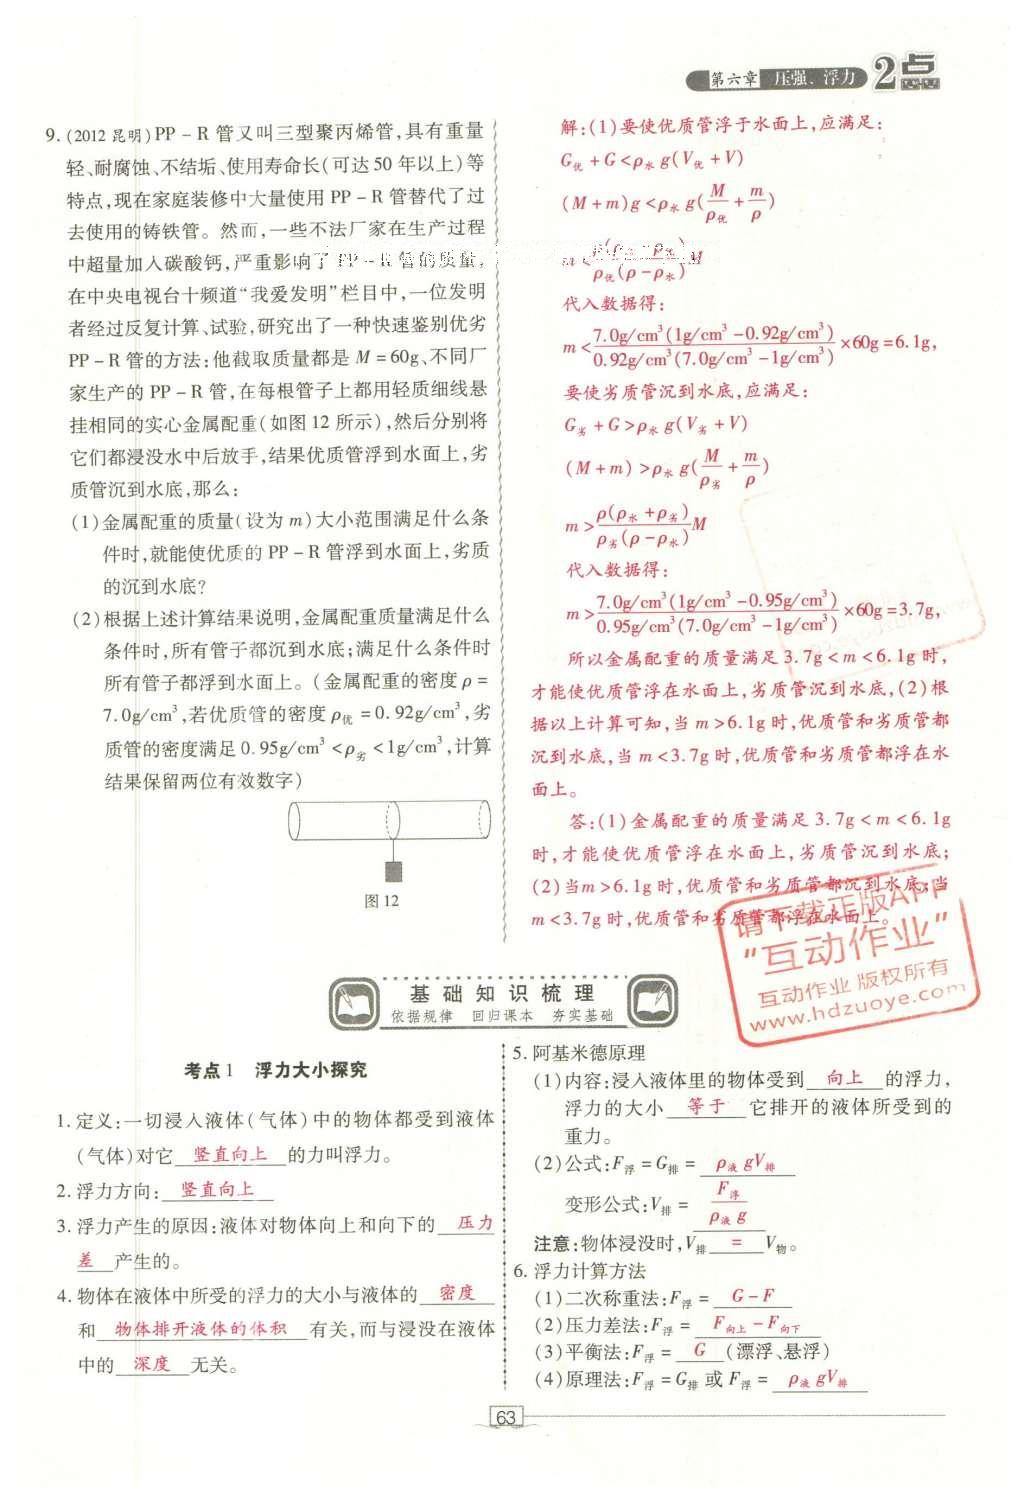 第六章 压强、浮力 2点
9. (2012 昆明)PP-R 管又叫三型聚丙烯管,具有重量
轻、耐腐蚀、不结垢、使用寿命长(可达 50 年以上)等
特点,现在家庭装修中大量使用 PP-R 管替代了过
去使用的铸铁管。然而,一些不法厂家在生产过程
中超量加入碳酸钙,严重影响了 PP-R 管的质量,
在中央电视台十频道“我爱发明”栏目中,一位发明
者经过反复计算、试验,研究出了一种快速鉴别优劣
PP-R 管的方法:他截取质量都是 M=60g、不同厂
家生产的 PP-R 管,在每根管子上都用轻质细线悬
挂相同的实心金属配重(如图 12 所示),然后分别将
它们都浸没水中后放手,结果优质管浮到水面上,劣
质管沉到水底,那么:
(1)金属配重的质量(设为 m)大小范围满足什么条
件时,就能使优质的 PP-R 管浮到水面上,劣质
的沉到水底?
(2)根据上述计算结果说明,金属配重质量满足什么
条件时,所有管子都沉到水底;满足什么条件时
所有管子都浮到水面上。(金属配重的密度 ρ=
7.0g/cm³,若优质管的密度 ρ优=0.92g/cm³,劣
质管的密度满足 0.95g/cm³<ρ劣<1g/cm³,计算
结果保留两位有效数字)
图 12
解:(1)要使优质管浮于水面上,应满足:
G优+G<ρ水g(V优+V)
(M+m)g<ρ水g(M/ρ优+m/ρ)
m< /ρ优(ρ-ρ水) M
代入数据得:
m<7.0g/cm³(1g/cm³-0.92g/cm³)/0.92g/cm³(7.0g/cm³-1g/cm³)×60g=6.1g,
要使劣质管沉到水底,应满足:
G劣+G>ρ水g(V劣+V)
(M+m)>ρ水g(M/ρ劣+m/ρ)
m>ρ(ρ水+ρ劣)/ρ劣(ρ-ρ水)M
代入数据得:
m>7.0g/cm³(1g/cm³-0.95g/cm³)/0.95g/cm³(7.0g/cm³-1g/cm³)×60g=3.7g,
所以金属配重的质量满足 3.7g<m<6.1g 时,
才能使优质管浮在水面上,劣质管沉到水底,(2)根
据以上计算可知,当 m>6.1g 时,优质管和劣质管都
沉到水底,当 m<3.7g 时,优质管和劣质管都浮在水
面上。
答:(1)金属配重的质量满足 3.7g<m<6.1g
时,才能使优质管浮在水面上,劣质管沉到水底;
(2)当 m>6.1g 时,优质管和劣质管都沉到水底;当
m<3.7g 时,优质管和劣质管都浮在水面上。
请下载正版APP
“互动作业”
互动作业 版权所有
www.hdzuoye.com
基础知识梳理
依据规律 回归课本 夯实基础
考点 1 浮力大小探究
1. 定义:一切浸入液体(气体)中的物体都受到液体
(气体)对它 竖直向上 的力叫浮力。
2. 浮力方向: 竖直向上
3. 浮力产生的原因:液体对物体向上和向下的 压力
差 产生的。
4. 物体在液体中所受的浮力的大小与液体的 密度
和 物体排开液体的体积 有关,而与浸没在液体
中的 深度 无关。
5. 阿基米德原理
(1)内容:浸入液体里的物体受到 向上 的浮力,
浮力的大小 等于 它排开的液体所受到的
重力。
(2)公式:F浮=G排= ρ液gV排
变形公式:V排= F浮/ρ液g
注意:物体浸没时,V排 = V物。
6. 浮力计算方法
(1)二次称重法:F浮= G-F
(2)压力差法:F浮= F向上-F向下
(3)平衡法:F浮= G (漂浮、悬浮)
(4)原理法:F浮=G排 或 F浮= ρ液gV排
63